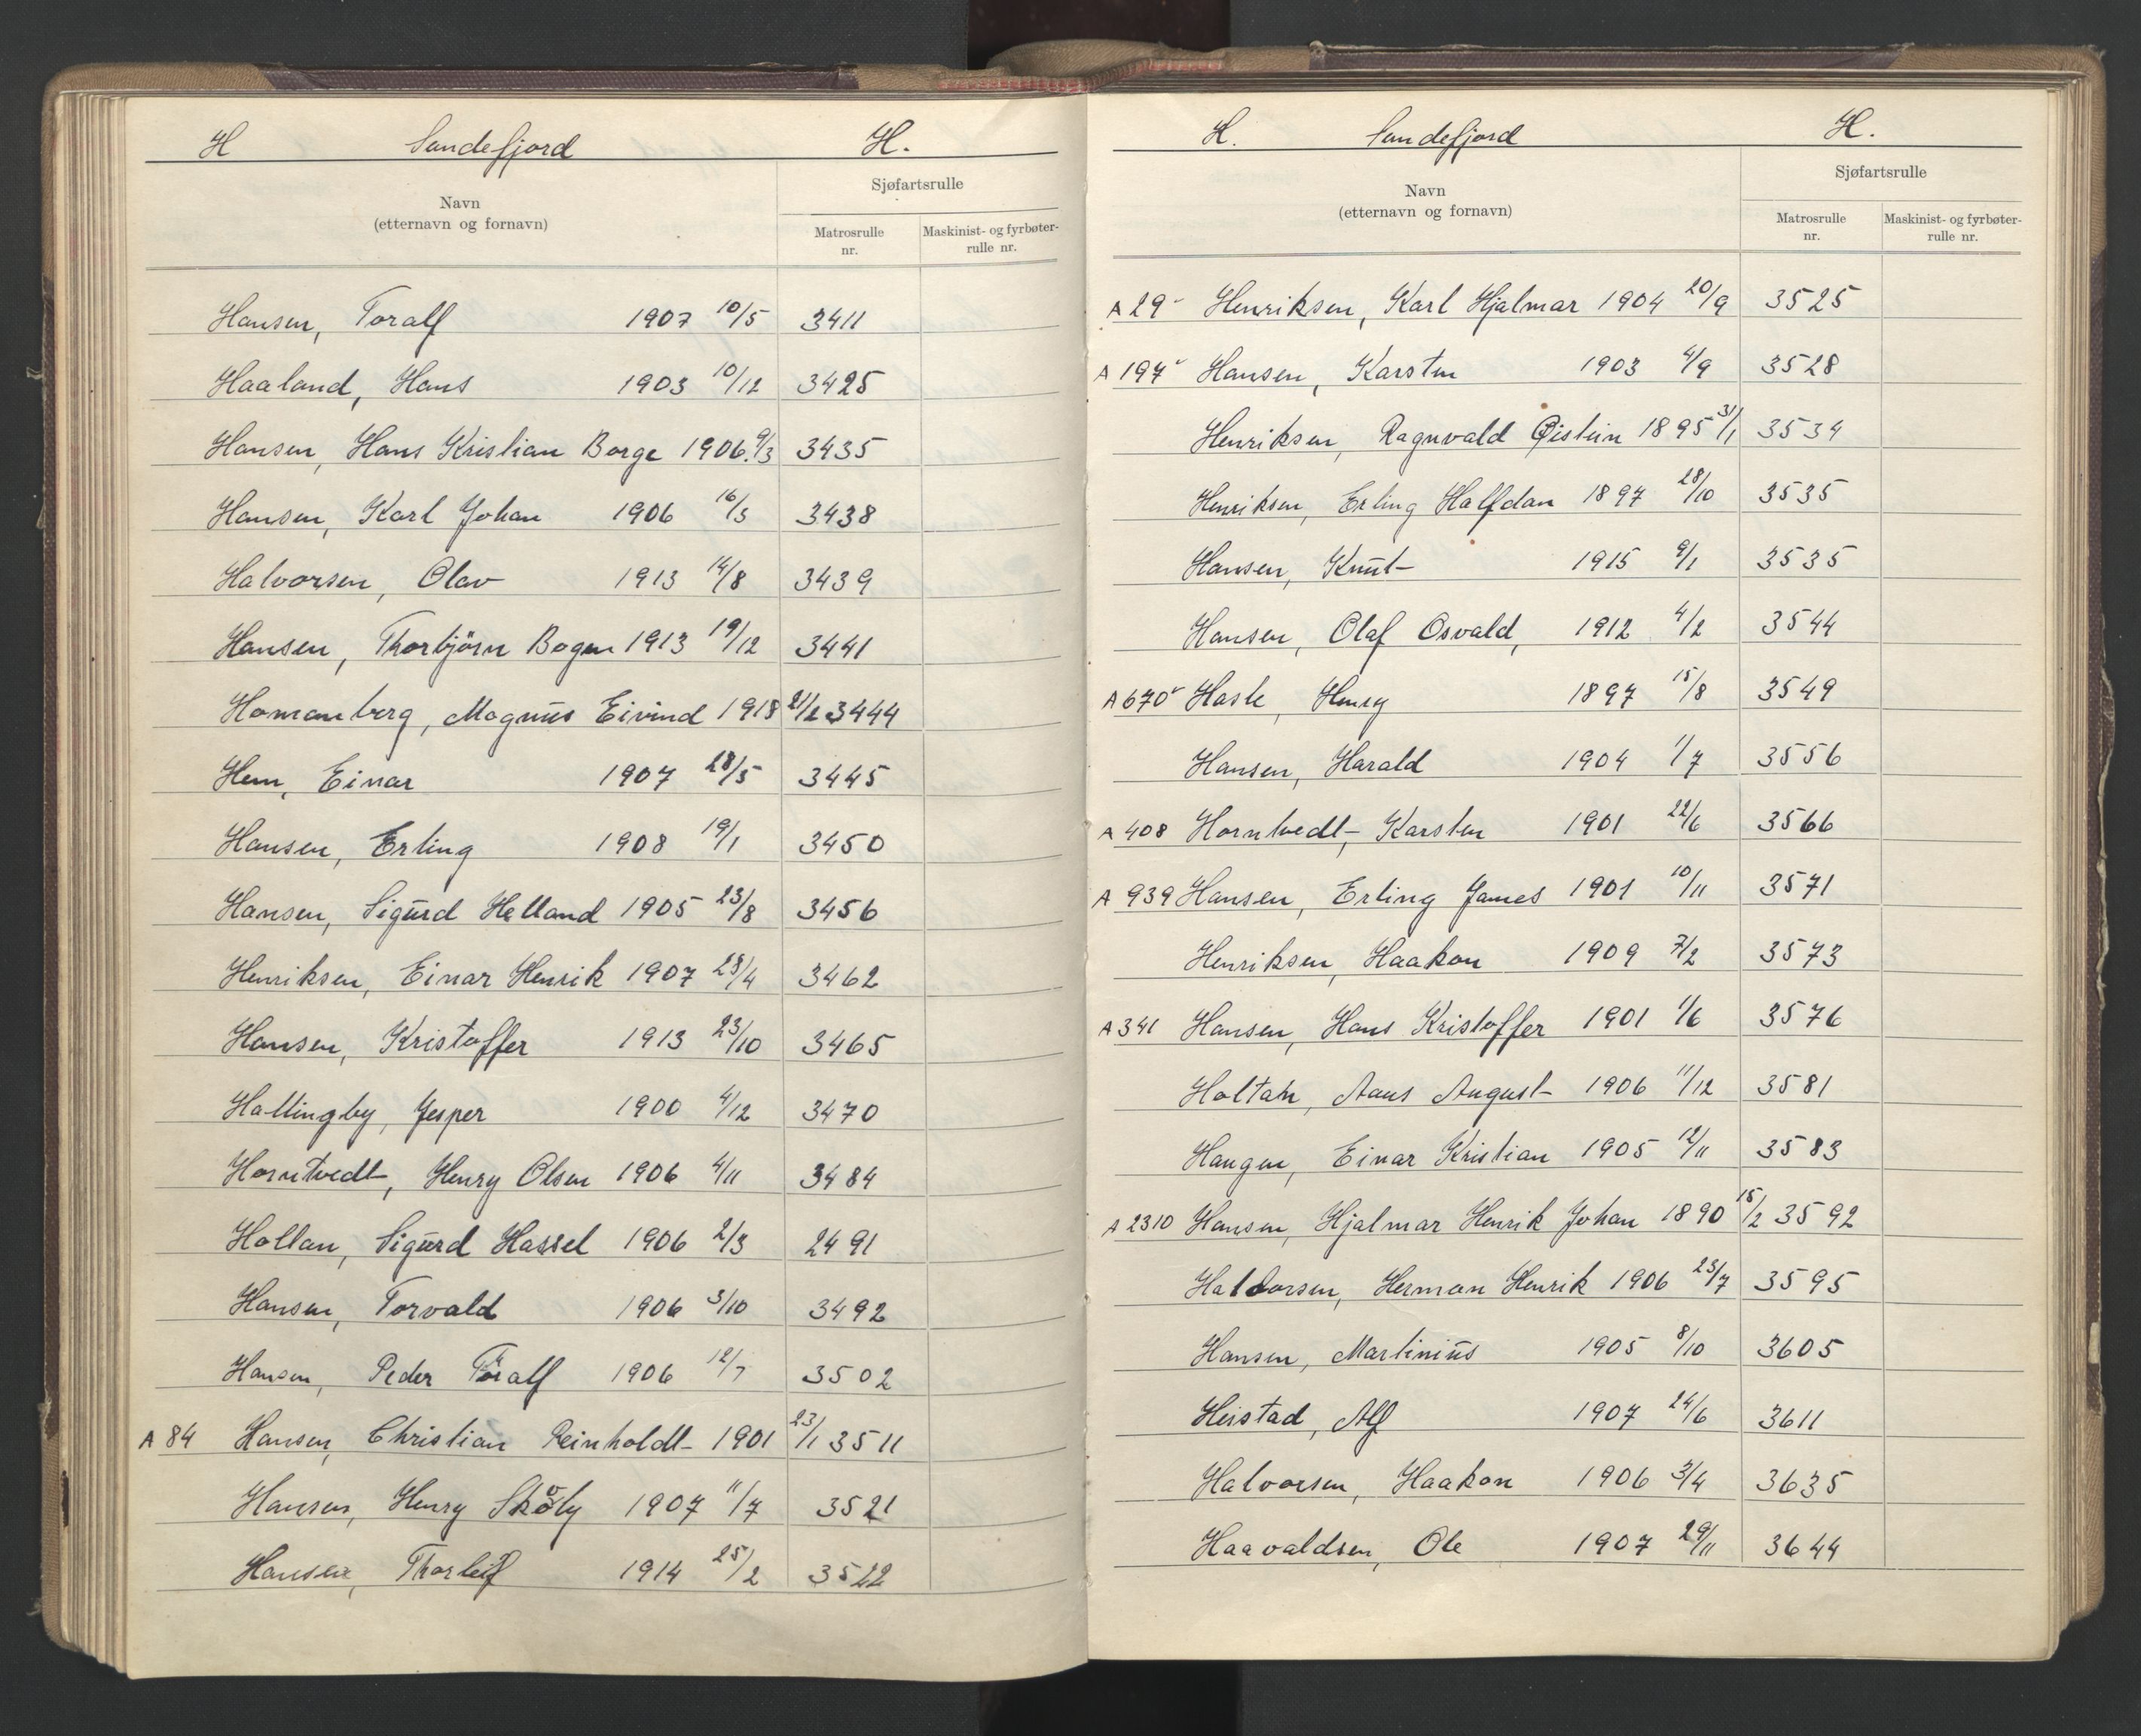 H Sandefjord H.
Sjøfartsrulle
Navn
(etternavn og fornavn)
Matrosrulle nr.
Maskinist- og fyrbøter-rulle nr.
Hansen, Toralf 1907 10/5 3411
Haaland, Hans 1903 10/12 3425
Hansen, Hans Kristian Borge 1906. 9/3 3435
Hansen, Karl Johan 1906 16/3 3438
Halvorsen, Olav 1913 14/8 3439
Hansen, Thorbjörn Bogen 1913 19/12 3441
Homanberg, Magnus Eivind 1918 21/2 3444
Hem, Einar 1907 28/5 3445
Hansen, Erling 1908 19/1 3450
Hansen, Sigurd Helland 1905 23/8 3456
Henriksen, Einar Henrik 1907 28/4 3462
Hansen, Kristoffer 1913 23/10 3465
Hallingby, Jesper 1900 4/12 3470
Horntvedt, Henry Olsen 1906 4/11 3484
Hollan, Sigurd Hassel 1906 2/3 2491
Hansen, Torvald 1906 3/10 3492
Hansen, Peder Toralf 1906 12/7 3502
A 84 Hansen, Christian Reinholdt 1901 23/1 3511
Hansen, Henry 1907 11/7 3521
Hansen, Thorleif 1914 25/2 3522
H. Sandefjord H.
Sjøfartsrulle
Navn
(etternavn og fornavn)
Matrosrulle nr.
Maskinist- og fyrbøter-rulle nr.
A 29 Henriksen, Karl Hjalmar 1904 20/9 3525
A 197 Hansen, Karsten 1903 4/9 3528
Henriksen, Ragnvald Øistein 1895 31/1 3534
Henriksen, Erling Halfdan 1897 28/10 3535
Hansen, Knut 1915 9/1 3535
Hansen, Olaf Osvald, 1912 4/2 3544
A 670 Hasle, Henry 1897 15/8 3549
Hansen, Harald 1904 1/7 3556
A 408 Horntvedt, Karsten 1901 22/6 3566
A 939 Hansen, Erling James 1901 10/11 3571
Henriksen, Haakon 1909 7/2 3573
A 341 Hansen, Hans Kristoffer 1901 1/6 3576
Holtan, Hans August 1906 11/12 3581
Haugen, Einar Kristian 1905 12/11 3583
A 2310 Hansen, Hjalmar Henrik Johan 1890 15/2 3592
Haldorsen, Herman Henrik 1906 23/7 3595
Hansen, Martinius 1905 8/10 3605
Heistad, Alf 1907 24/6 3611
Halvorsen, Haakon 1906 3/4 3635
Haavaldsen, Ole 1907 29/11 3644